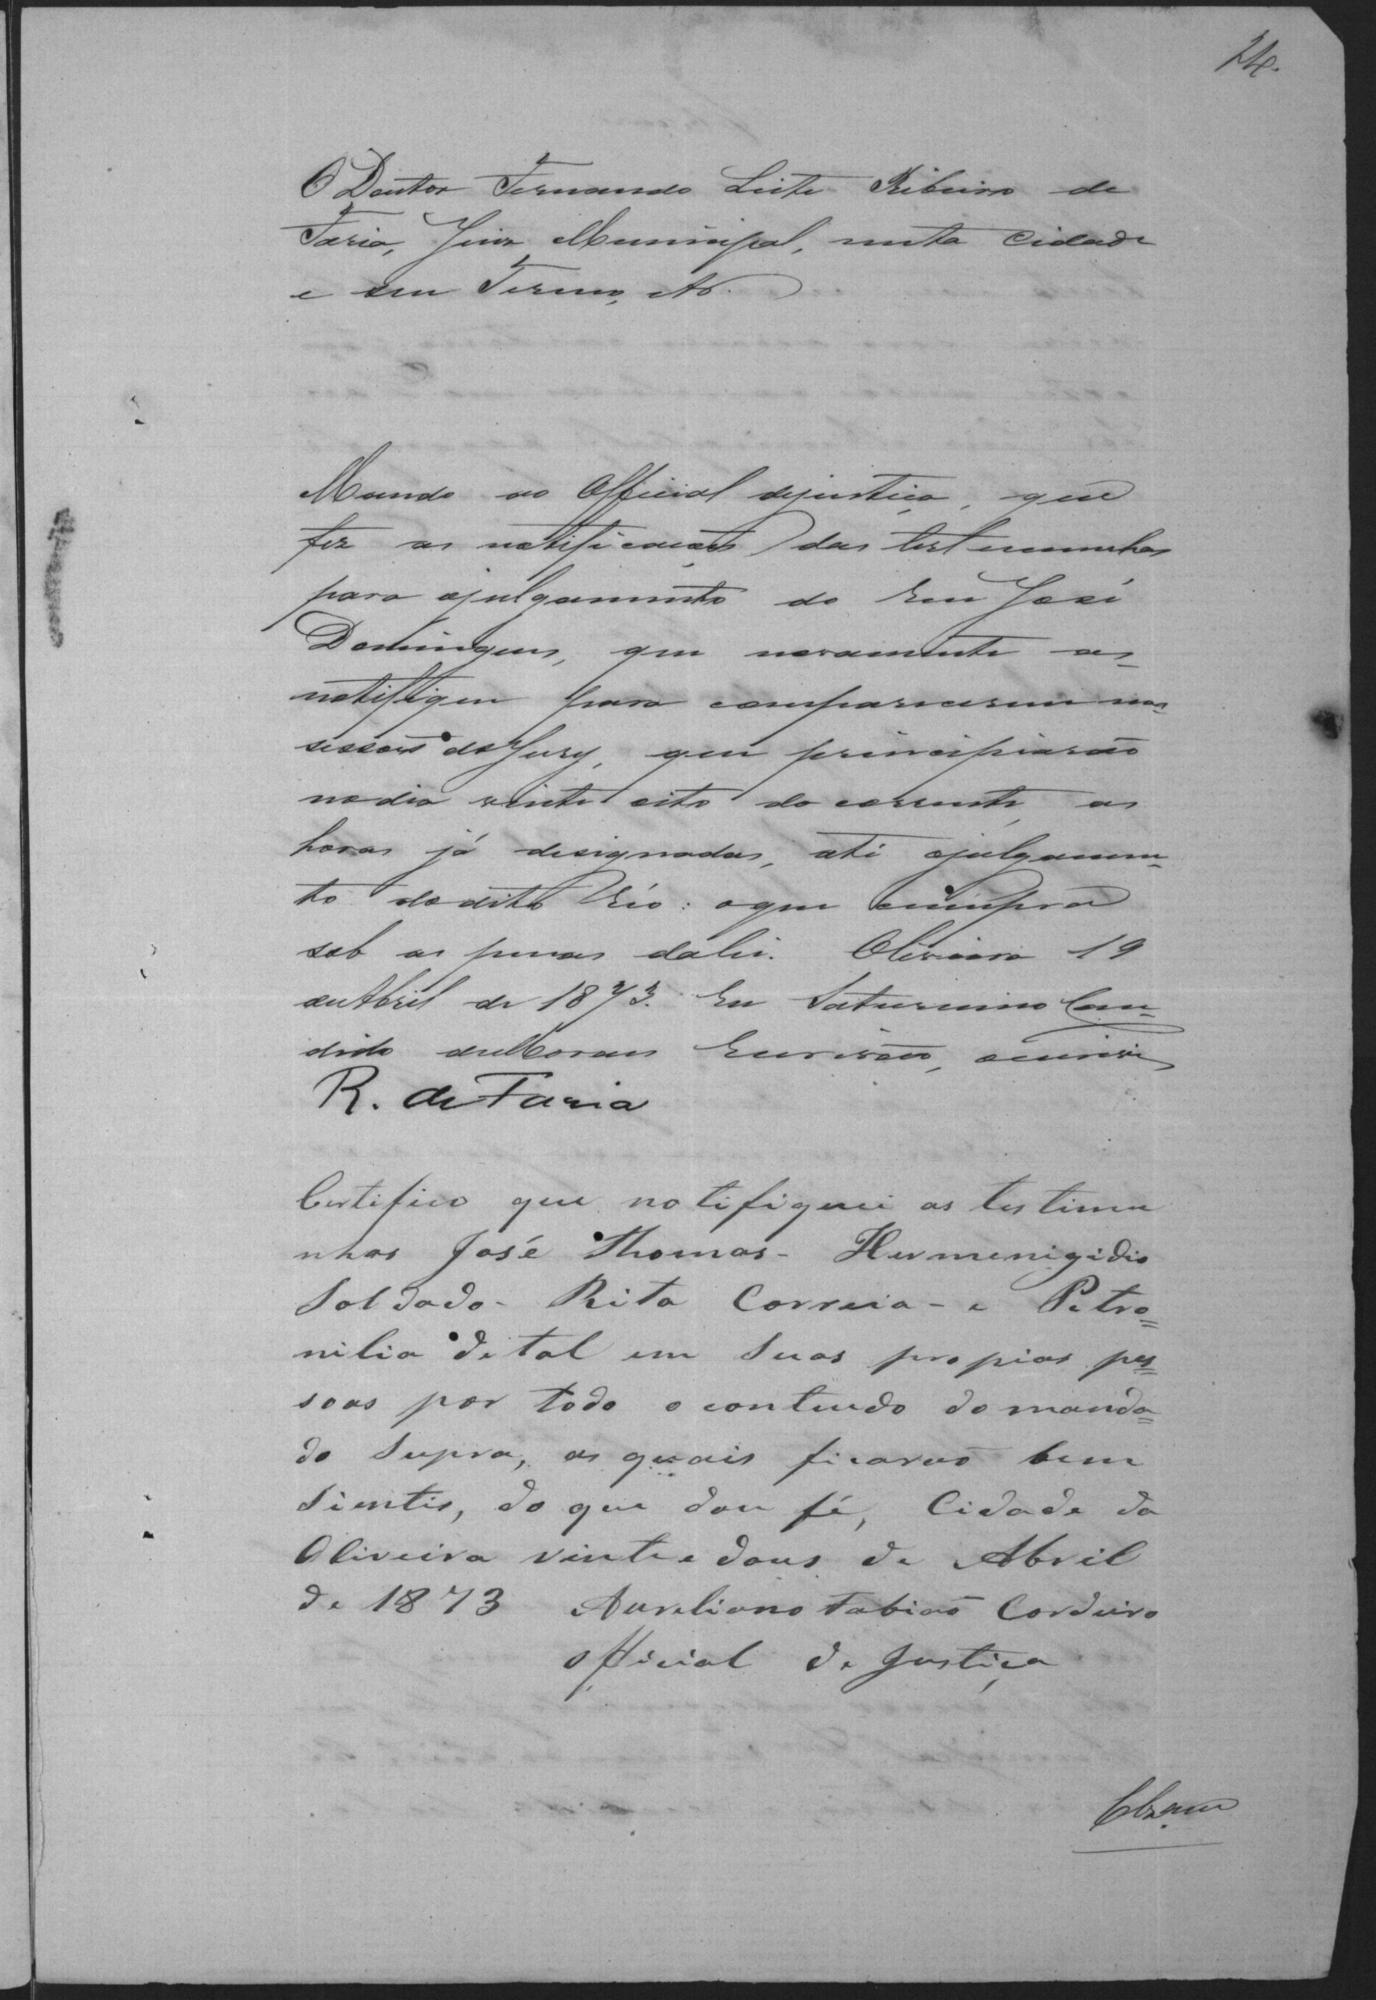 24.
O Doutor Fernando Leite Ribeiro de
Faria, Juiz Municipal, nesta Cidade
e seu Termo, etc.
Mando ao Official dejustiça, que
fez as notificações das testemunhas
para ojulgamento do Reu José
Domingues, que novamente as
notifique para comparecerem nas
sessoes do Jury, que principiarão
nodia vinte oito do corrente, as
horas já designadas, até ojulgamen-
to dodito Réo: oque cumpra
sob as penas dalei. Oliveira 19
deAbril de 1873. Eu Saturnino Can-
dido deMoraes Escrivão, oescrevi
R. de Faria
Certifico que notifiquei as testimu
nhas José Thomas - Hermenigidio
Soldado - Rita Correia - e Petro=
nilia de tal em Suas propias pes=
soas por todo o conteudo do manda=
do Supra, as quais ficarão bem
Sientis, do que dou fé, Cidade da
Oliveira vinte e dous de Abril
de 1873 Aureliano Fabiaõ Cordeiro
official de Justiça